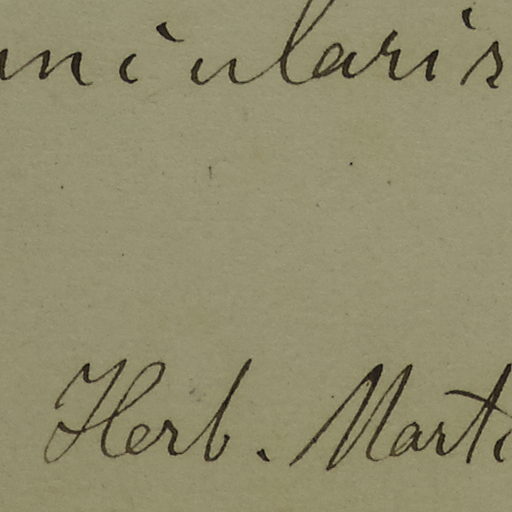 uncularis
Herb. Marti